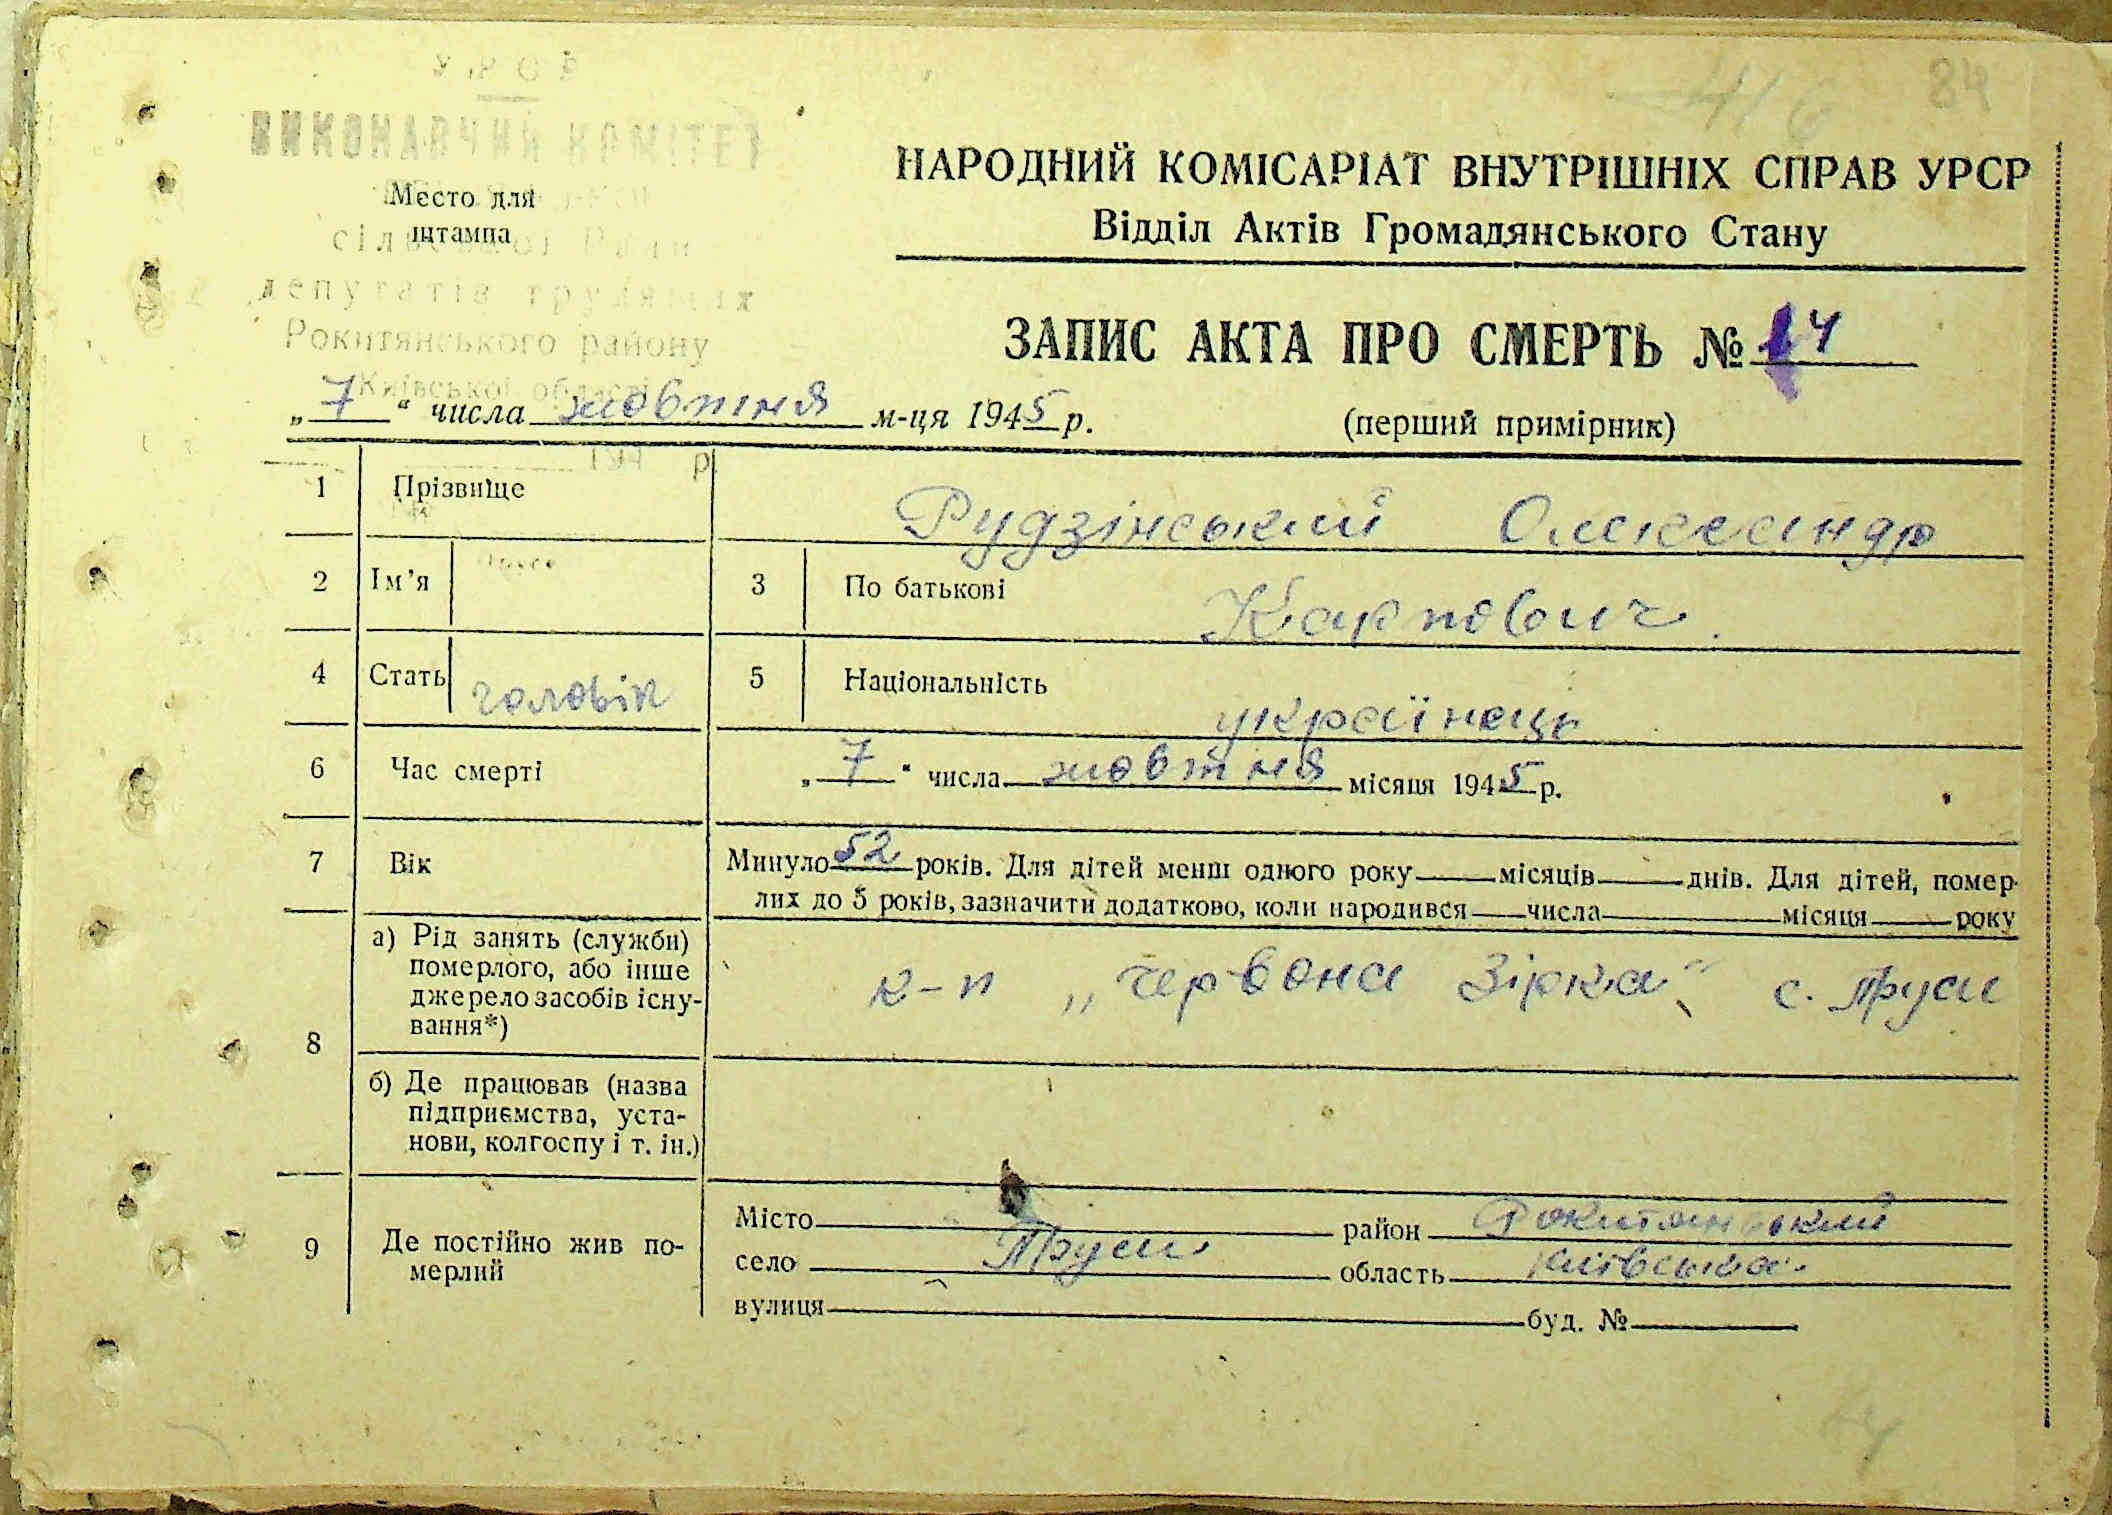 УРСР
ВИКОНАВЧИЙ КОМІТЕТ
Место для
штампа
сільської Ради
депутатів трудящих
Рокитянського району
Київської області
84
НАРОДНИЙ КОМІСАРІАТ ВНУТРІШНІХ СПРАВ УРСР
Відділ Актів Громадянського Стану
ЗАПИС АКТА ПРО СМЕРТЬ № 14
„7“ числа жовтня м-ця 1945 р.
(перший примірник)
194 р
1 Прізвище Рудзінський Олександр
2 Ім’я 3 По батькові Карпович
4 Стать чоловік 5 Національність українець
6 Час смерті „7“ числа жовтня місяця 1945 р.
7 Вік Минуло 52 років. Для дітей менш одного року місяців днів. Для дітей, помер-
лих до 5 років, зазначити додатково, коли народився числа місяця року
8 а) Рід занять (служби)
померлого, або інше
джерело засобів існу-
вання*)
к-п „Червона Зірка“ с. Пруси
б) Де працював (назва
підприємства, уста-
нови, колгоспу і т. ін.)
9 Де постійно жив по-
мерлий
Місто район Рокитянський
село Пруси область Київська
вулиця буд. №